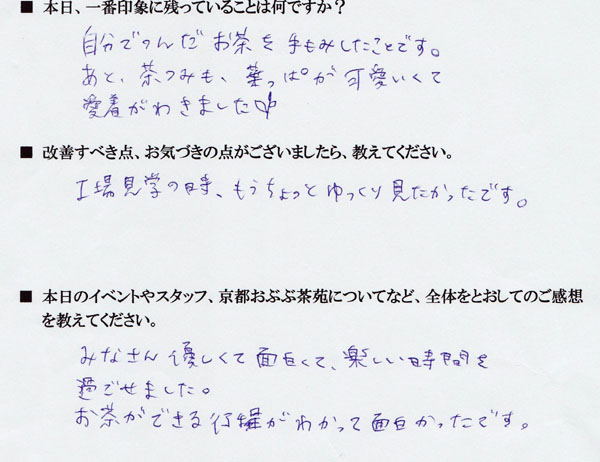 ■ 本日、一番印象に残っていることは何ですか？
自分でつんだお茶を手もみしたことです。
あと、茶つみも、葉っぱが可愛いくて
愛着がわきました
■ 改善すべき点、お気づきの点がございましたら、教えてください。
工場見学の時、もうちょっとゆっくり見たかったです。
■ 本日のイベントやスタッフ、京都おぶぶ茶苑についてなど、全体をとおしてのご感想
を教えてください。
みなさん優しくて面白くて、楽しい時間を
過ごせました。
お茶ができる行程がわかって面白かったです。